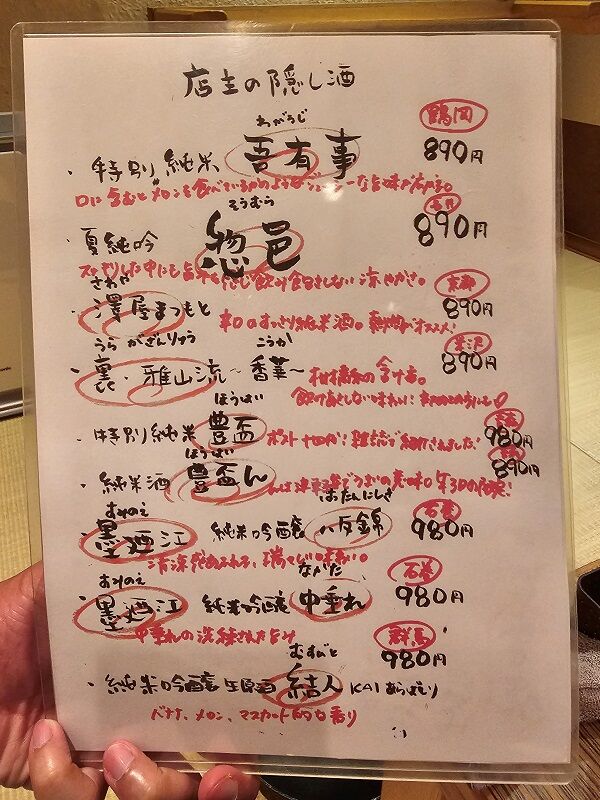 店主の隠し酒
わがうじ
鶴岡
・特別純米 吾有事 890円
口に含むとメロンを食べているかのようなジューシーな旨味が広がる。
そうむら
・夏純吟 惣邑 890円
スッキリした中にも旨味を感じ飲み飽きしない涼やかさ。
さわや
京都
・澤屋まつもと 890円
辛口のすっきり純米酒。熱燗がオススメ!
うら がざんりゅう こうか
米沢
・裏・雅山流〜香華〜 890円
柑橘系の含け香。
飲みあきしない味わい!
ほうはい
・特別純米 豊盃 980円
ポスト十四代!雑誌で紹介されました!
ほうはい
・純米酒 豊盃ん 890円
んは津軽弁で
おたんにしき
すみのえ
石巻
・墨廼江 純米吟醸 八反錦 980円
清涼感あふれる、瑞々しい味わい。
ながだた
すみのえ
石巻
・墨廼江 純米吟醸 中垂れ 980円
中垂れの洗練された
むすびと
群馬
980円
・純米吟醸生原酒 結人 KAI あらばしり
バナナ、メロン、マスカット的な香り